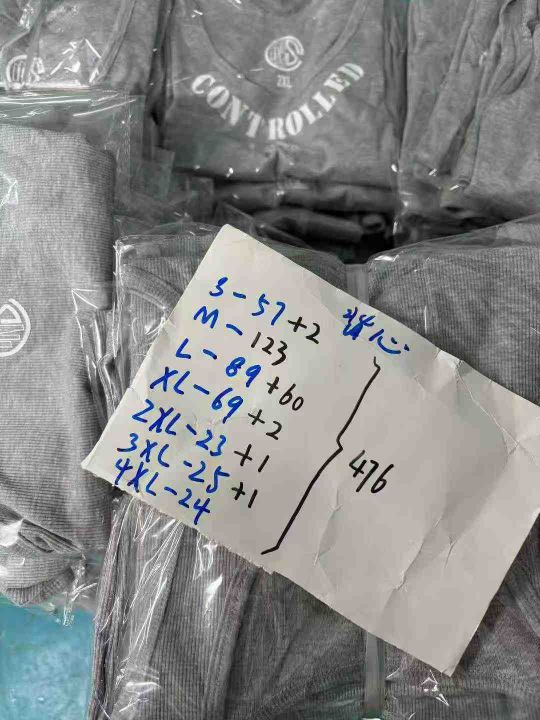 2XL
CONTROLLED
S-57+2
背心
M-123
L-89+60
XL-69+2
2XL-23+1
3XL-25+1
4XL-24
476